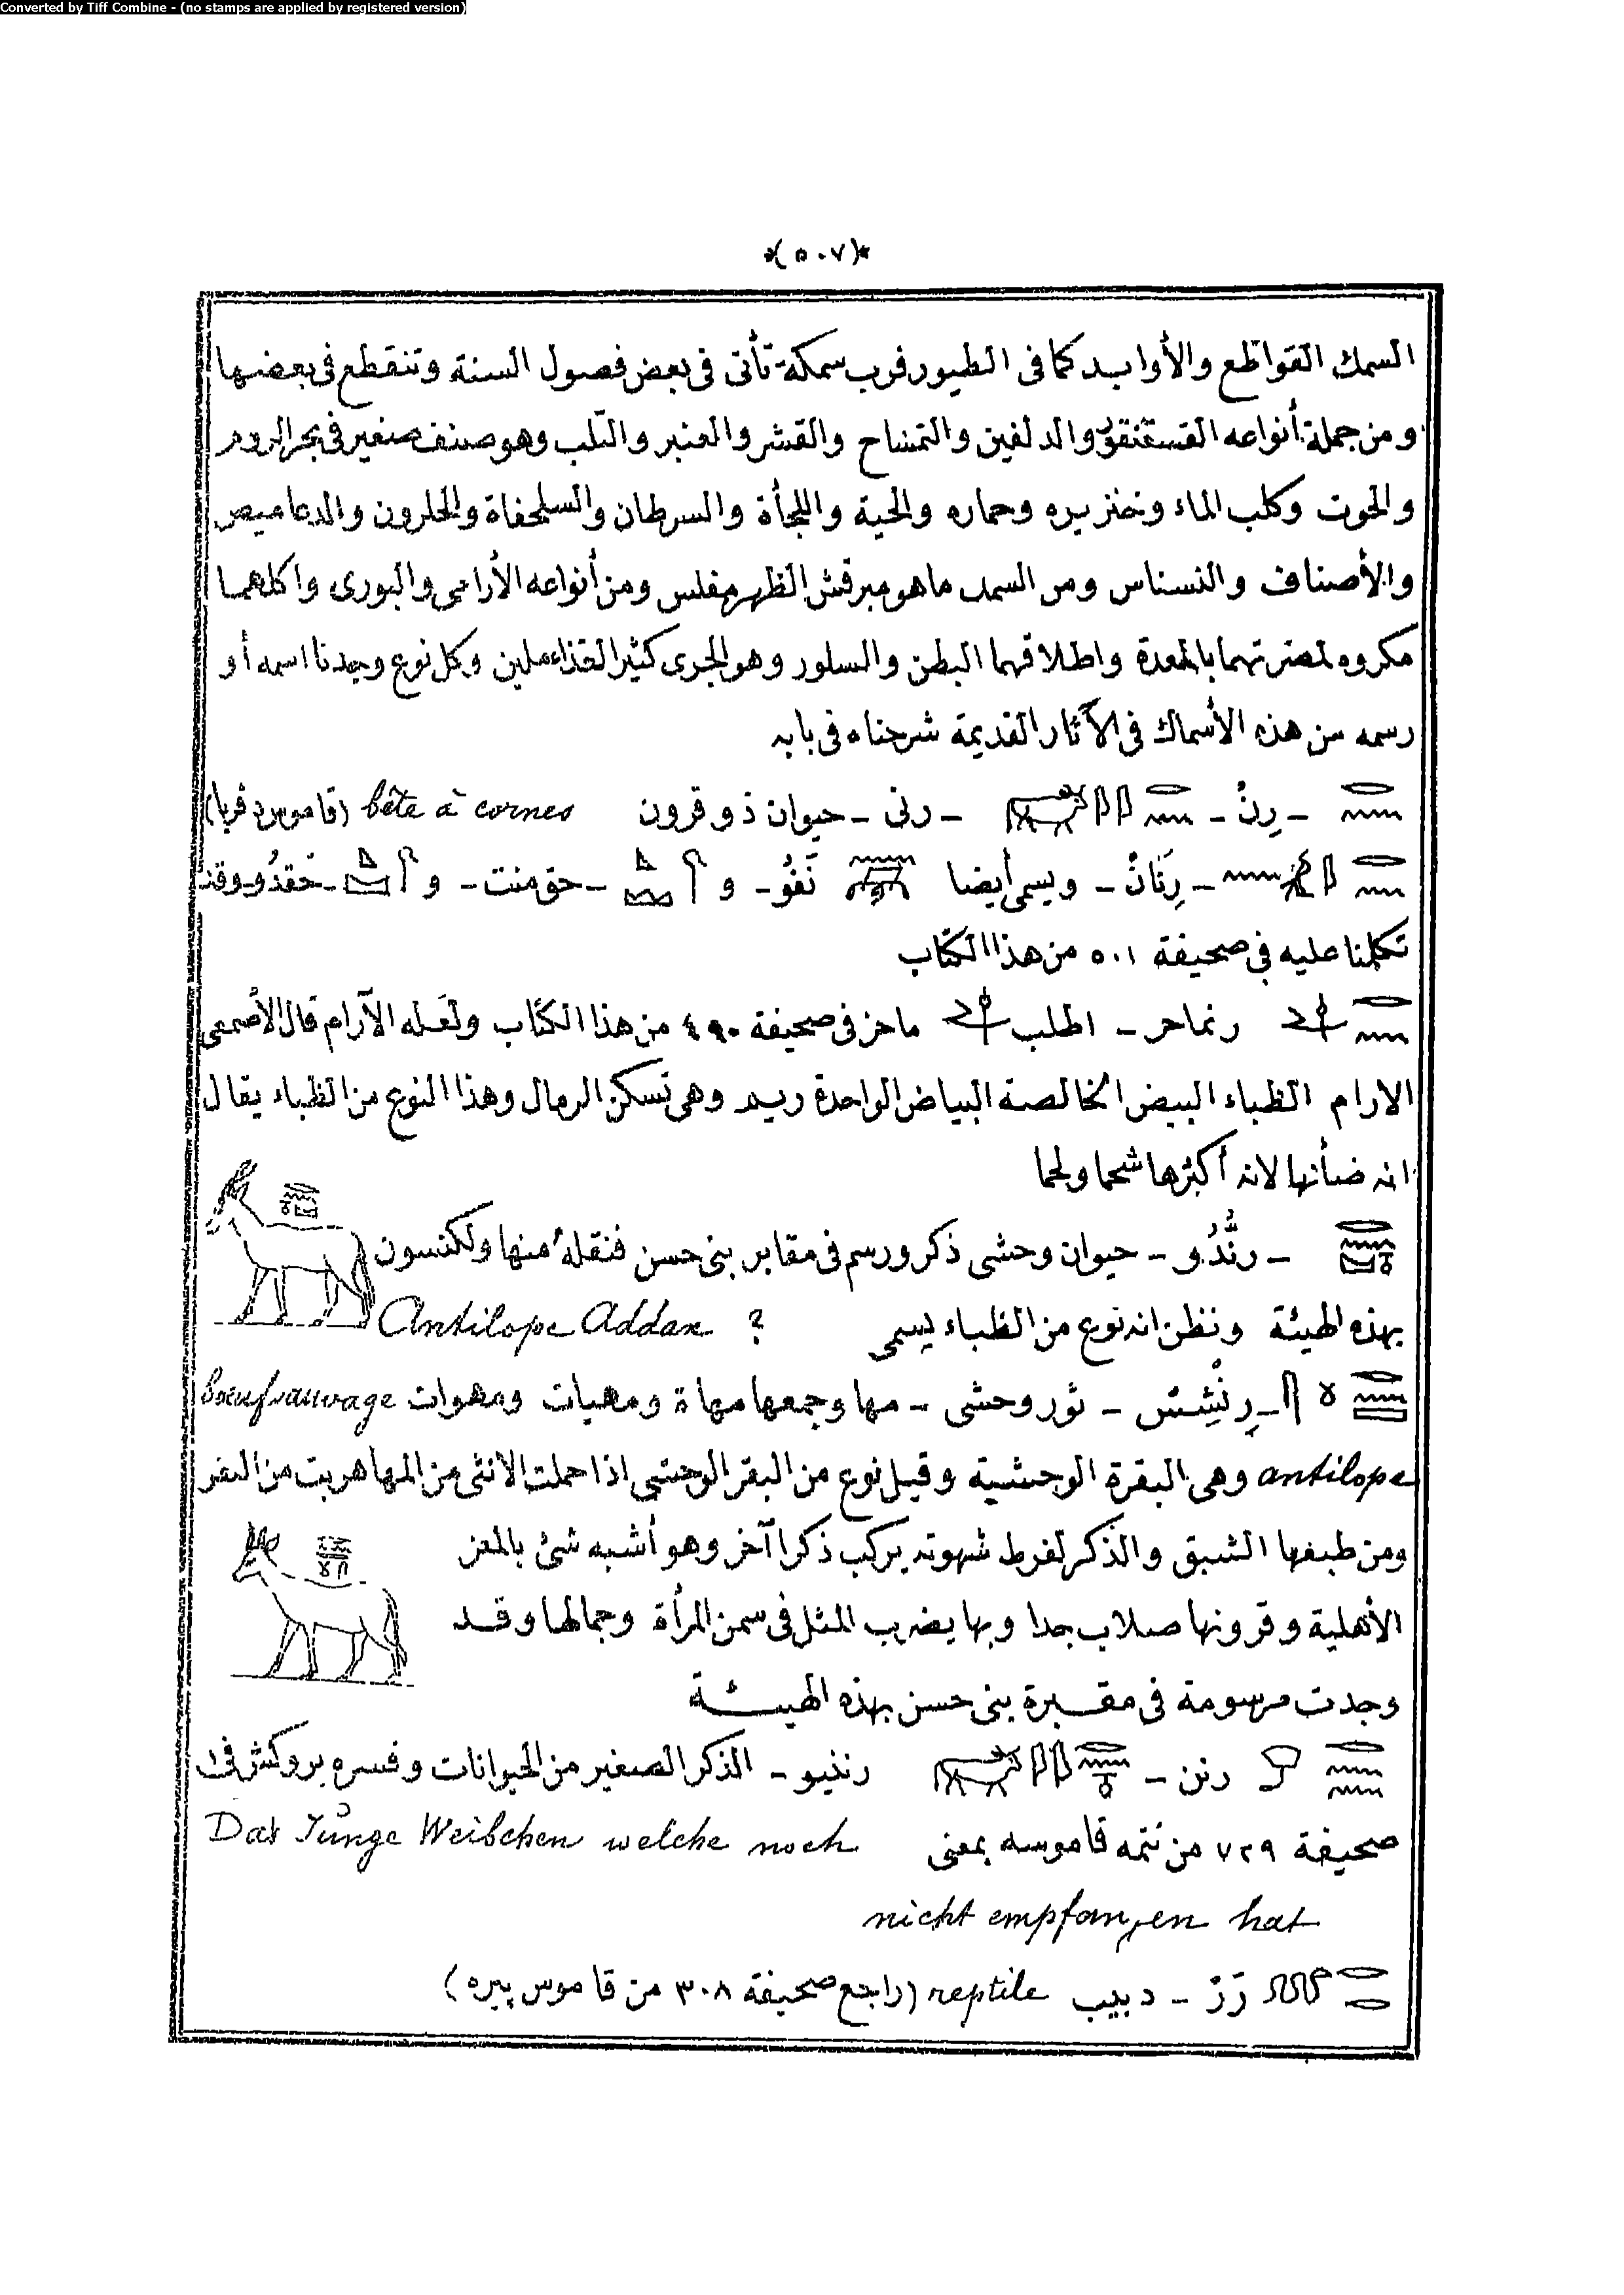 Converted by Tiff Combine - (no stamps are applied by registered version)
*(٥٠٧)*
السمك القواطع والأوابد كما فى الطيور فرب سمكة تأتى فى بعض فصول السنة وتنقطع فى بعضها
ومن جملة أنواعه السقنقور والدلفين والتمساح والقشر والعنبر والتلب وهو صنف صغير فى بحر الروم
والحوت وكلب الماء وخنزيره وحماره والحية واللجأة والسرطان والسلحفاة والحلزون والدعاميص
والأصناف والنسناس ومن السمك ما هو مبرقش الظهر مفلس ومن أنواعه الأرامى والبورى واكلهما
مكروه لمضرتهما بالمعدة واطلاقهما البطن والسلور وهو الجرى كثير الغذاء ملين وكل نوع وجدنا اسمه أو
رسمه من هذه الأسماك فى الآثار القديمة شرحناه فى بابه
- رِنْ - - رنى - حيوان ذو قرون bête à cornes (قاموس
- رِنَانْ - ويسمى أيضا نَفُو - و - حق منت - و
تكلمنا عليه فى صحيفة ٥٠١ من هذا الكتاب
رنماحز - اطلب ماحز فى صحيفة ٤٩٠ من هذا الكتاب ولعله الآرام قال الأصمعى
الارام الظباء البيض الخالصة البياض الواحدة ريم وهى تسكن الرمال وهذا النوع من الظباء يقال
انه ضأنها لانه أكثرها شحما ولحما
- رنُّدُو - حيوان وحشى ذكر ورسم فى مقابر بنى حسن فنقله منها ولكنسون
بهذه الهيئة ونظن انه نوع من الظباء يسمى Antilope Addax ?
- رِنْشِسْ - ثور وحشى - مها وجمعها مهاة ومهيات ومهوات bœuf sauvage
antilope وهى البقرة الوحشية وقيل نوع من البقر الوحشى اذا حملت الانثى من المها هربت من البقر
ومن طبعها الشبق والذكر لفرط شهوته يركب ذكرا آخر وهو أشبه شئ بالمعز
الأهلية وقرونها صلاب جدا وبها يضرب المثل فى سمن المرأة وجمالها وقد
وجدت مرسومة فى مقبرة بنى حسن بهذه الهيئة
رنن - رننيو - الذكر الصغير من الحيوانات وفسره بروكش فى
صحيفة ٧٢٩ من تتمه قاموسه بمعنى Das Junge Weibchen welche noch
nicht empfangen hat
رَرْ - دبيب reptile (راجع صحيفة ٣٠٨ من قاموس پيره)